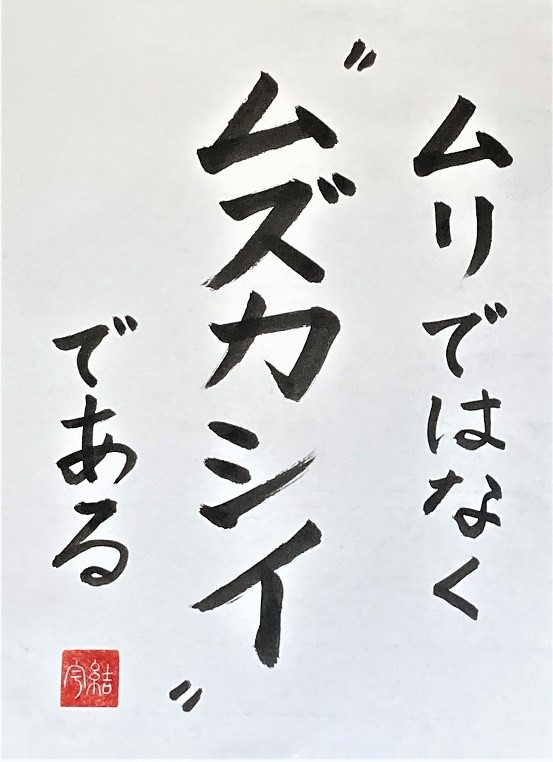 ムリではなく
〃ムズカシイ〃
である